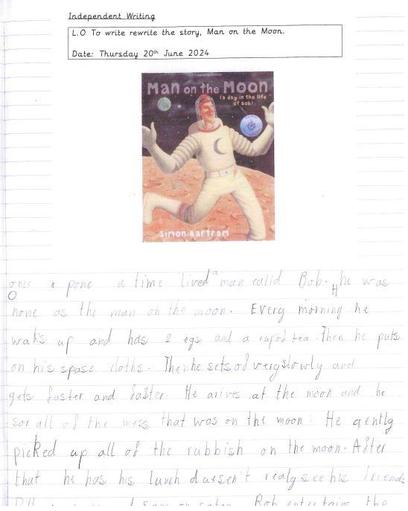 Independent Writing
L.O To write rewrite the story, Man on the Moon.
Date: Thursday 20th June 2024
Man on the Moon
(a day in the life
of Bob)
Simon Bartram
once a pone a time lived a man calld Bob. he was
O H
none as the man on the moon. Every morning he
waks up and has 2 egs and a cup of tea. Then he puts
on his spase cloths. Then he sets of very slowly and
gets faster and faster. He arives at the moon and he
sor all of the mess that was on the moon. He gently
picked up all of the rubbish on the moon. After
that he has his lunch duesn't realy see his friends
Bob entertains the